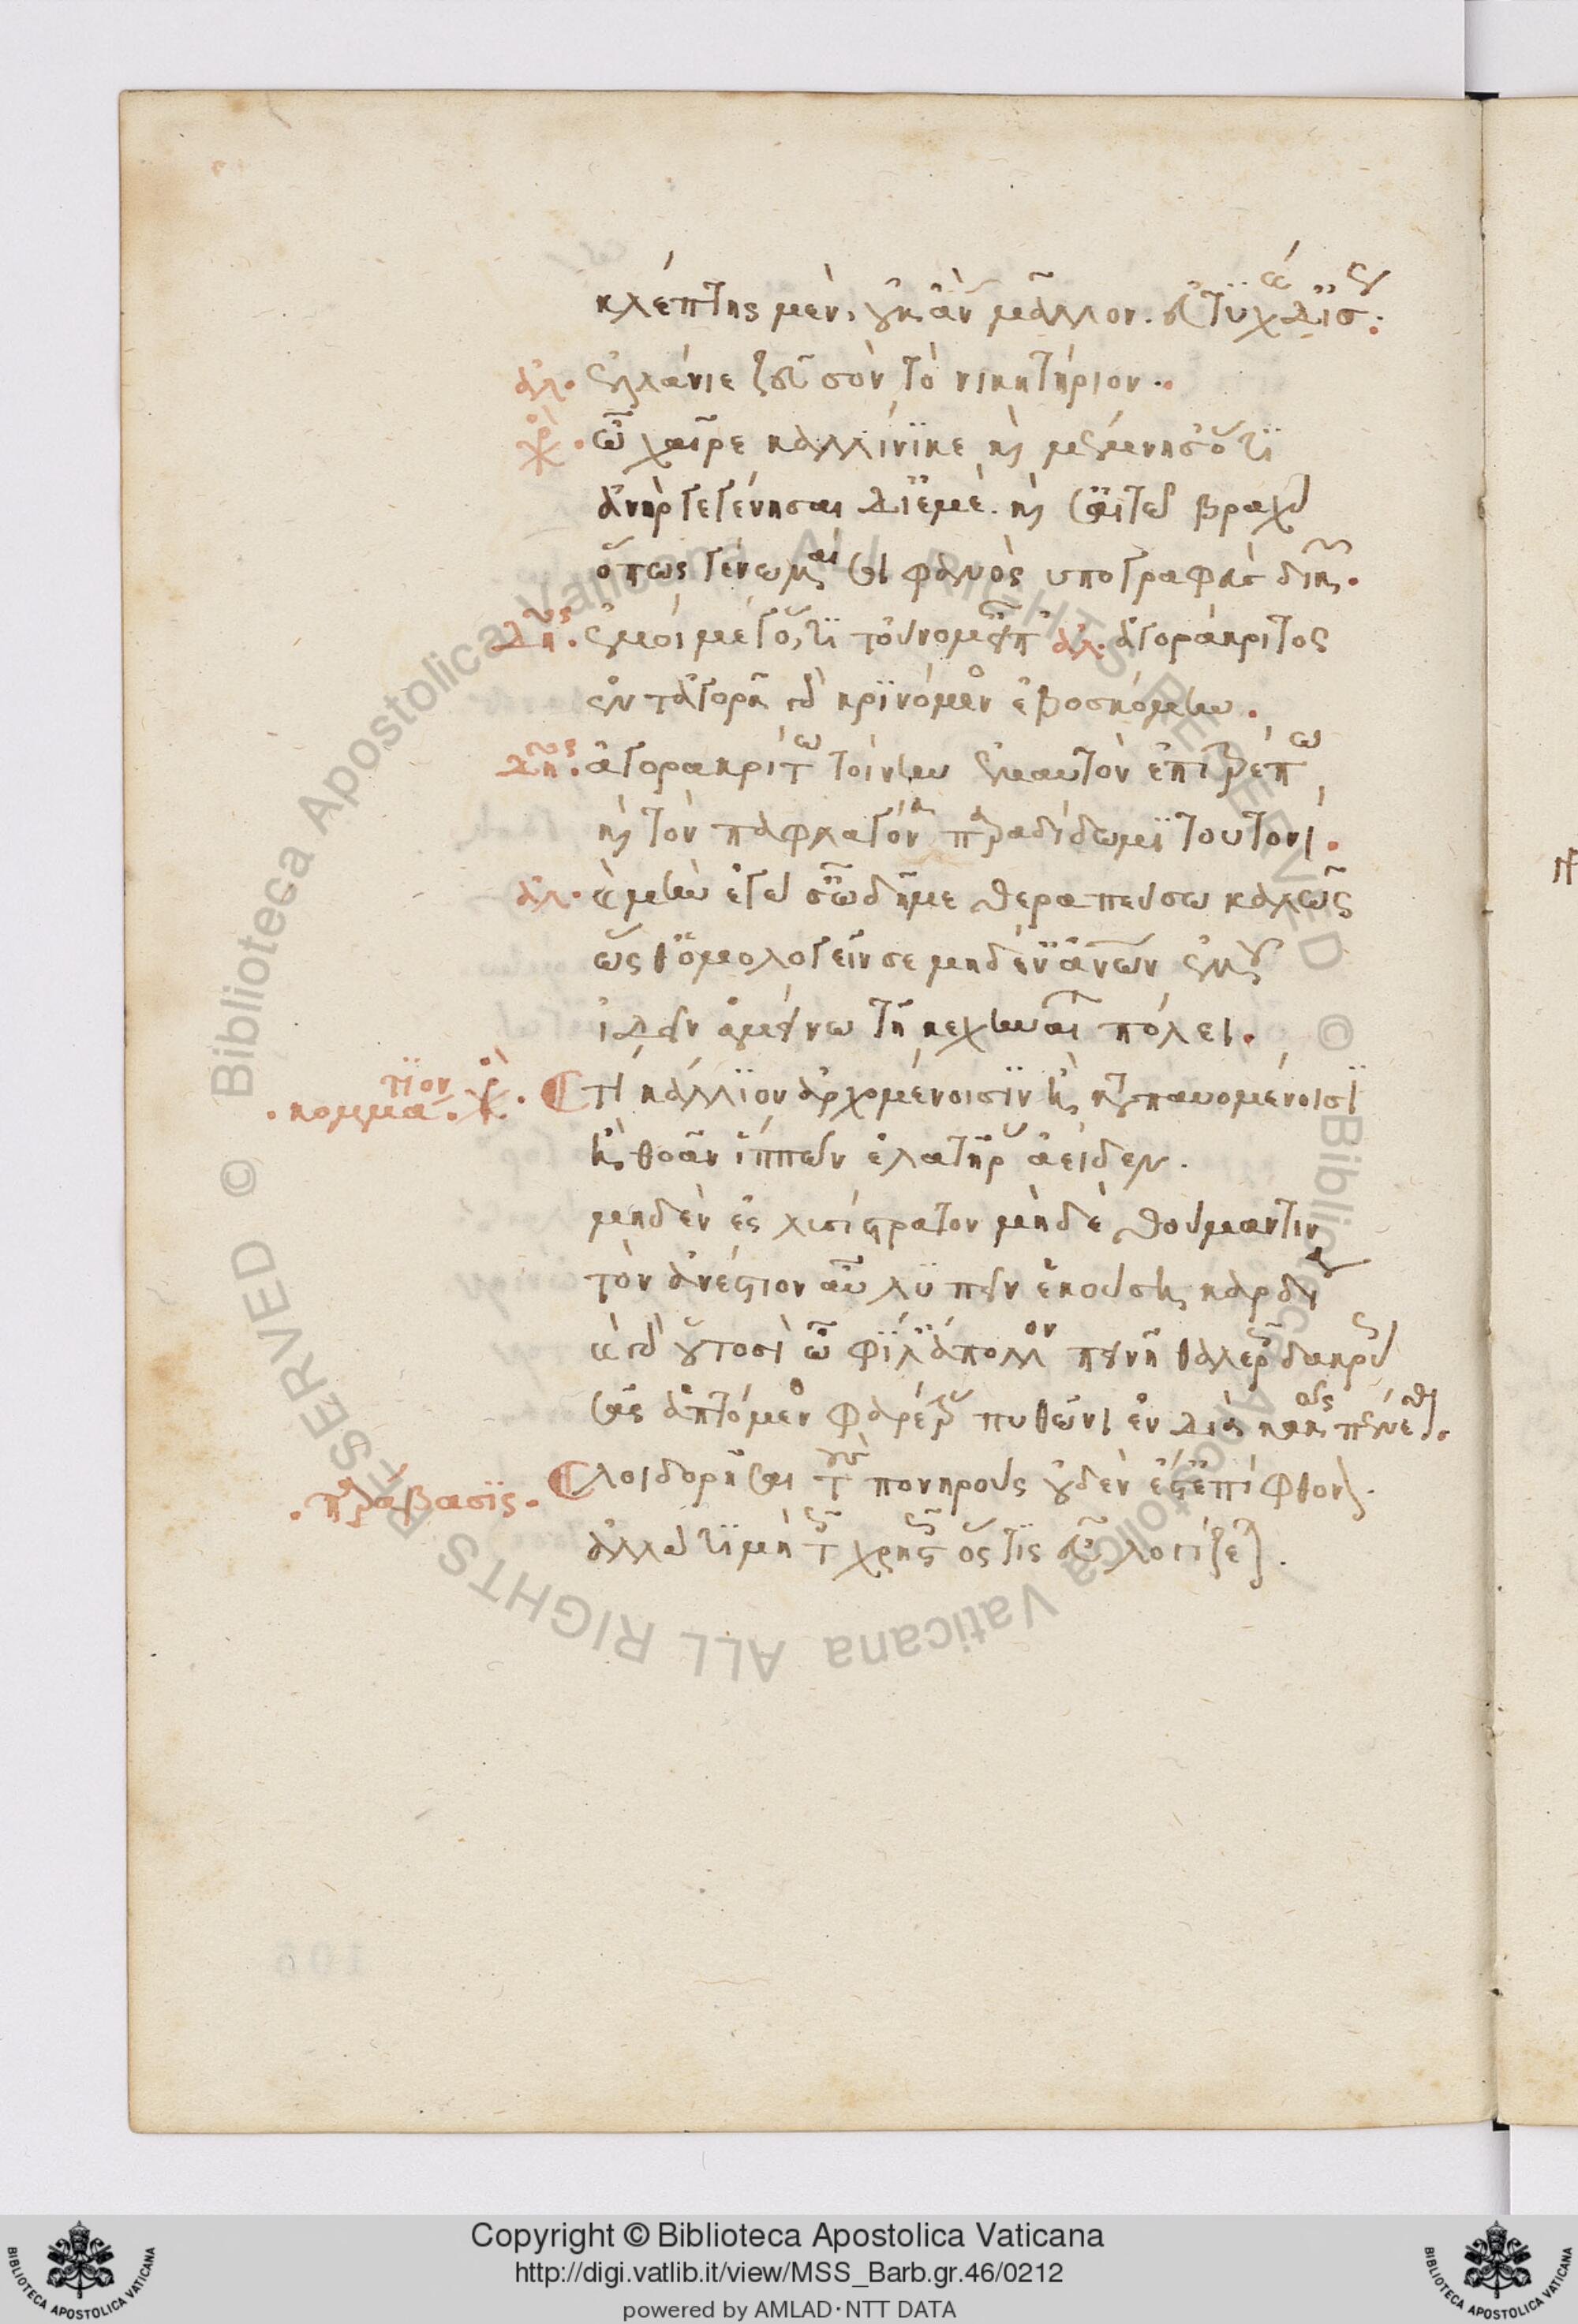 κλέπτης μὲν, οὐκ ἂν μᾶλλον. εὐτυχὴς δ' ἴσως:
ἀλ. ἑλλάνιε ζεῦ σὸν τὸ νικητήριον.
χορ. ὦ χαῖρε καλλίνικε καὶ μέμνησ' ὅτι
ἀνὴρ γεγένησαι δι' ἐμέ. καί σ' αἰτῶ βραχὺ
ὅπως γένωμαί σοι φανὸς ὑπογραφεὺς δικῶν.
δῆμος. ἐμοὶ δέ γ' ὅ,τι τοὔνομ' εἴπ' ἀλ. ἀγοράκριτος
ἐν τἀγορᾷ γὰρ κρινόμενος ἐβοσκόμην.
δῆμος. ἀγορακρίτῳ τοίνυν ἐμαυτὸν ἐπιτρέπω
καὶ τὸν παφλαγόνα παραδίδωμι τουτονί.
ἀλ. καὶ μὴν ἐγώ σ' ὦ δῆμε θεραπεύσω καλῶς
ὥσθ' ὁμολογεῖν σε μηδέν' ἀνθρώπων ἐμοῦ
ἰδεῖν ἀμείνω τῇ κεχηναίων πόλει.
κομμάτιον. χορ. τί κάλλιον ἀρχομένοισιν ἢ καταπαυομένοισι
ἢ θοᾶν ἵππων ἐλατῆρας ἀείδειν.
μηδὲν ἐς λυσίστρατον μηδὲ θούμαντιν
τὸν ἀνέστιον αὖ λυπεῖν ἑκούσῃ καρδίᾳ
καὶ γὰρ οὗτοσὶ ὦ φίλ' ἄπολλον πεινῇ θαλεροῖς δακρύοις
σᾶς ἁπτόμενος φαρέτρας πυθῶνι ἐν δίᾳ κακῶς πένεσθαι.
παράβασις. λοιδορῆσαι τοὺς πονηροὺς οὐδέν ἐστ' ἐπίφθονον.
ἀλλὰ τιμὴ τοῖς χρηστοῖς ὅστις εὖ λογίζεται.
Copyright © Biblioteca Apostolica Vaticana
http://digi.vatlib.it/view/MSS_Barb.gr.46/0212
powered by AMLAD·NTT DATA